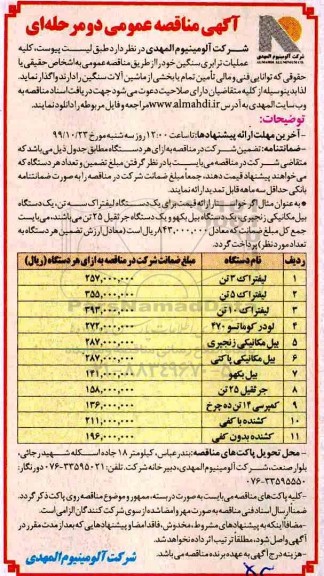 آگهی مناقصه عمومی دو مرحله‌ای
شرکت آلومینیوم المهدی
ALMAHDI ALUMINIUM CO.
شرکت آلومینیوم المهدی در نظر دارد طبق لیست پیوست، کلیه
عملیات ترابری سنگین خود را از طریق مناقصه عمومی به اشخاص حقیقی یا
حقوقی که توانایی فنی و مالی تأمین تمام یا بخشی از ماشین آلات سنگین را دارند واگذار نماید.
لذا بدینوسیله از کلیه متقاضیان دارای صلاحیت دعوت می‌شود جهت دریافت اسناد مناقصه به
وب سایت المهدی به آدرس www.almahdi.ir مراجعه و فایل مربوطه را دانلود نمایند.
توضیحات:
- آخرین مهلت ارائه پیشنهادها: تا ساعت ۱۲:۰۰ روز سه شنبه مورخ ۹۹/۱۰/۲۳
- ضمانتنامه: تضمین شرکت در مناقصه به ازای هر دستگاه مطابق جدول ذیل می‌باشد که
متقاضی شرکت در مناقصه می‌بایست با در نظر گرفتن مبلغ تضمین و تعداد هر دستگاه که
می‌خواهند پیشنهاد قیمت دهند، جمعاً مبلغ ضمانت شرکت در مناقصه را به صورت ضمانتنامه
بانکی حداقل سه ماهه قابل تمدید ارائه نمایند.
● به عنوان مثال اگر خواستار ارائه قیمت برای یک دستگاه لیفتراک سه تن، یک دستگاه
بیل مکانیکی زنجیری، یک دستگاه بیل بکهو و یک دستگاه جرثقیل ۲۵ تن می‌باشند، می‌بایست
جمع کل مبلغ ضمانت که معادل ۸۴۳,۰۰۰,۰۰۰ ریال است (معادل ارزش تضمین هر دستگاه به
تعداد مورد نظر) پرداخت گردد.
ردیف نام دستگاه مبلغ ضمانت شرکت در مناقصه به ازای هر دستگاه (ریال)
۱ لیفتراک ۳ تن ۲۵۷,۰۰۰,۰۰۰
۲ لیفتراک ۵ تن ۳۵۵,۰۰۰,۰۰۰
۳ لیفتراک ۱۰ تن ۳۹۳,۰۰۰,۰۰۰
۴ لودر کوماتسو ۴۷۰ ۲۷۲,۰۰۰,۰۰۰
۵ بیل مکانیکی زنجیری ۲۸۷,۰۰۰,۰۰۰
۶ بیل مکانیکی پاکتی ۲۸۷,۰۰۰,۰۰۰
۷ بیل بکهو ۱۴۱,۰۰۰,۰۰۰
۸ جرثقیل ۲۵ تن ۱۵۸,۰۰۰,۰۰۰
۹ کمپرسی ۱۴ تن ده چرخ ۱۳۶,۰۰۰,۰۰۰
۱۰ کشنده با کفی ۲۱۱,۰۰۰,۰۰۰
۱۱ کشنده بدون کفی ۱۹۶,۰۰۰,۰۰۰
- محل تحویل پاکت‌های مناقصه: بندرعباس، کیلومتر ۱۸ جاده اسکله شهید رجائی،
بلوار صنعت، شرکت آلومینیوم المهدی، دبیرخانه شرکت. تلفن: ۳۳۵۹۵۰۲۱-۰۷۶ دورنگار:
۰۷۶-۳۳۵۹۵۵۵۰
- کلیه پاکت‌های مناقصه می‌بایست به صورت دربسته، ممهور و موضوع مناقصه روی پاکت ذکر گردد.
ضمناً ارسال اسناد فنی مناقصه به صورت مهر و امضا شده از سوی شرکت کنندگان الزامی است.
- مضافاً اینکه به پیشنهادهای مشروط، مخدوش، فاقد امضا و پیشنهادهایی که بعد از مدت مقرر در
آگهی واصل شود، مطلقاً ترتیب اثر داده نخواهد شد.
- هزینه درج آگهی به عهده برنده مناقصه می‌باشد.
شرکت آلومینیوم المهدی